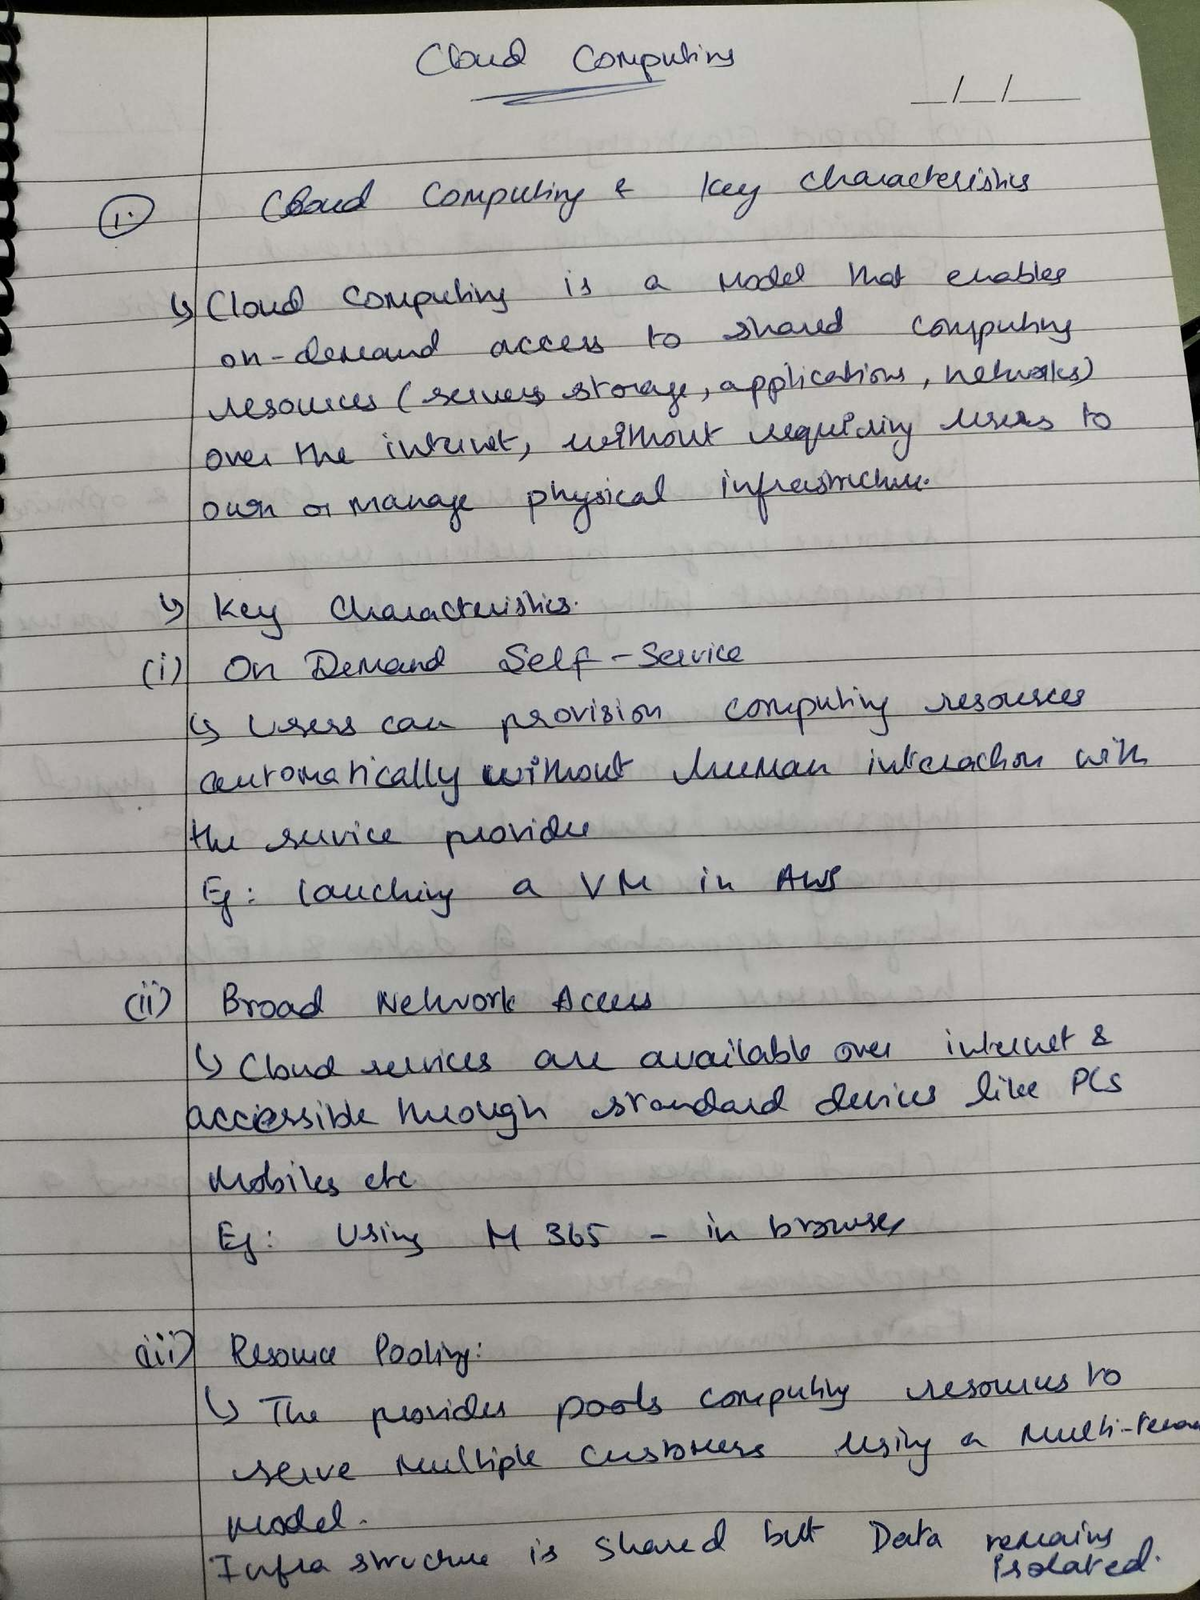 Cloud Computing
_/_/_
1. Cloud Computing & Key characteristics
↳ Cloud Computing is a model that enables
on-demand access to shared computing
resources (servers storage, applications, networks)
over the internet, without requiring users to
own or manage physical infrastructure.
↳ Key Characteristics.
(i) On Demand Self-Service
↳ Users can provision computing resources
automatically without human interaction with
the service provider
Eg: Lauching a VM in AWS
(ii) Broad Network Access
↳ Cloud services are available over internet &
accessible through standard devices like PCs
Mobiles etc
Eg: Using M 365 - in browser
(iii) Resource Pooling:
↳ The provider pools computing resources to
serve multiple customers using a multi-tena
model.
Infra structure is shared but Data remains
isolated.